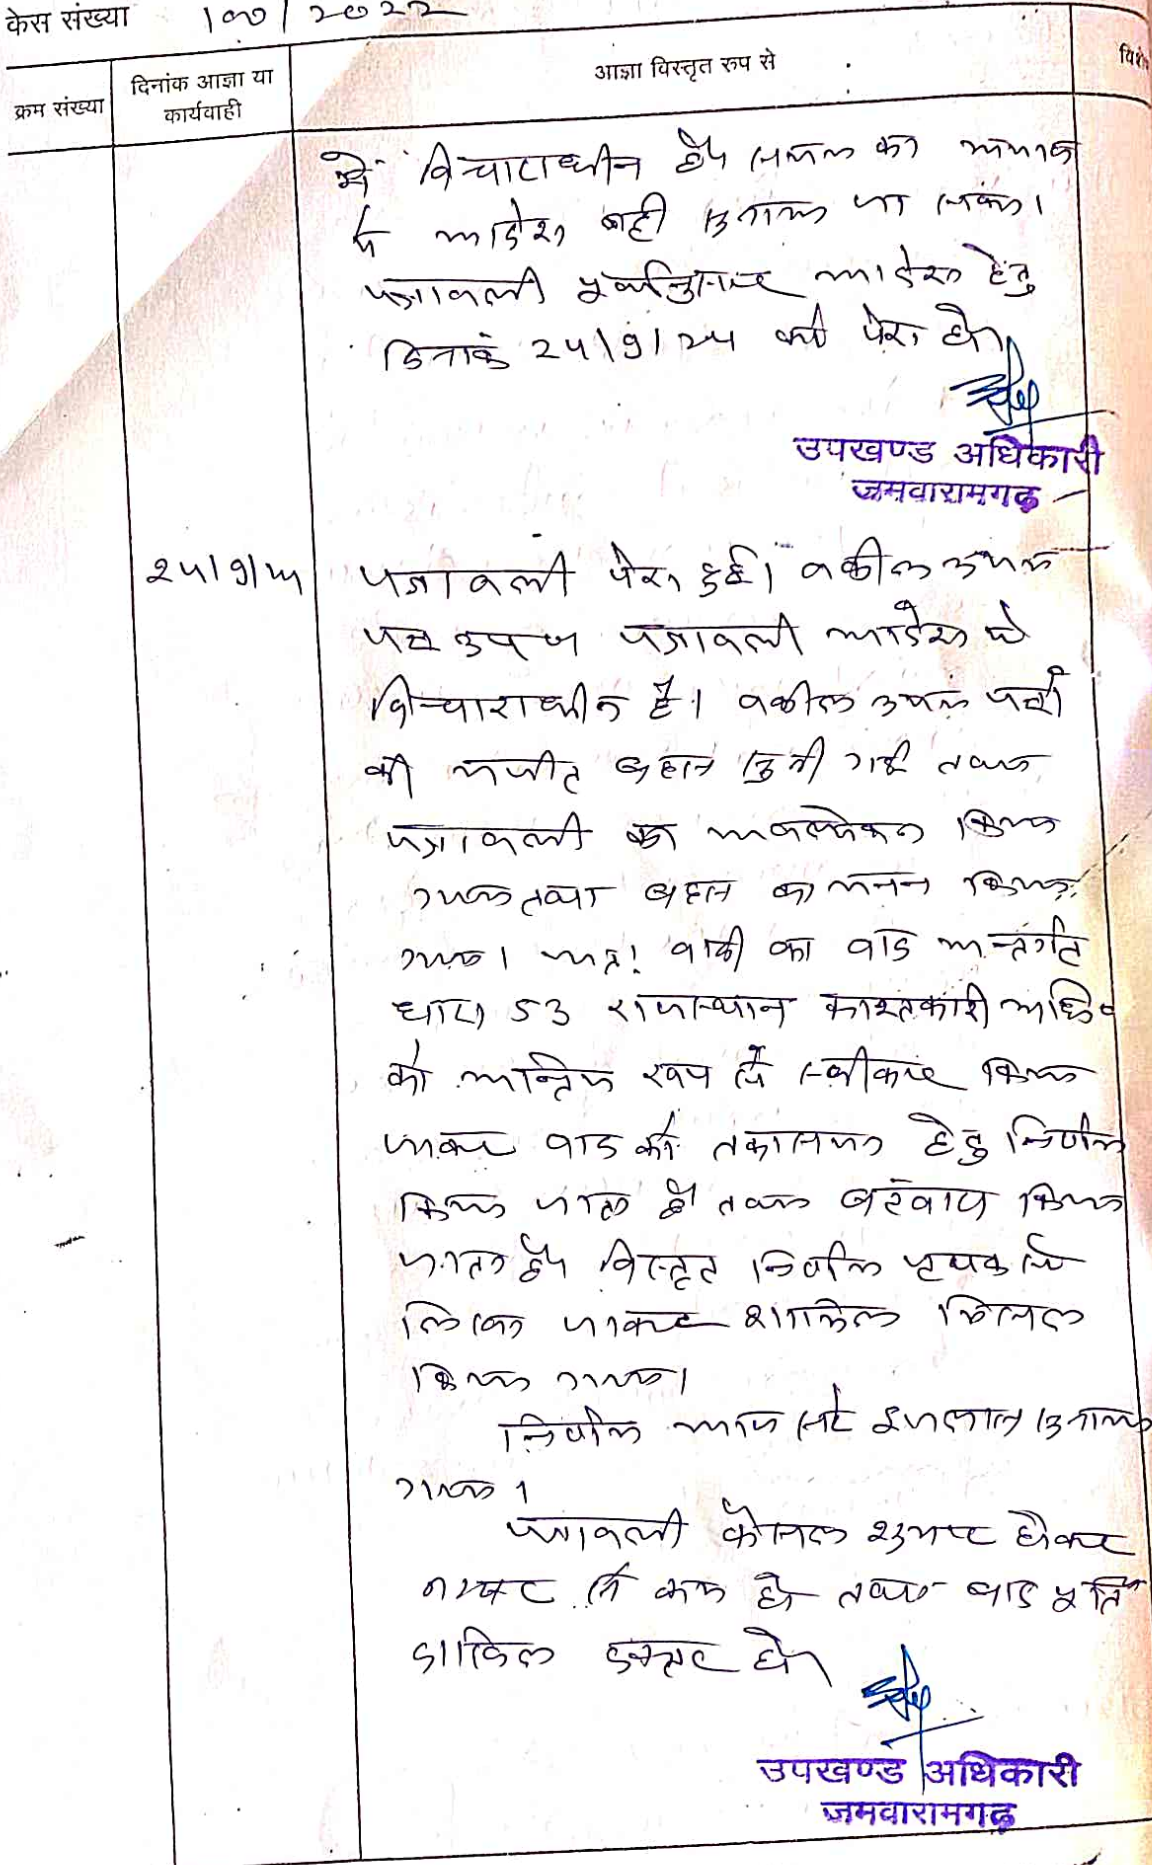 केस संख्या 100/2022
क्रम संख्या
दिनांक आज्ञा या
कार्यवाही
आज्ञा विस्तृत रुप से
विशे
में विचाराधीन है। समय का अभाव
से आदेश नही सुनाया जा सका।
पत्रावली पूर्वानुसार आदेश हेतु
दिनांक 24/9/24 को पेश हो।
उपखण्ड अधिकारी
जमवारामगढ
24/9/24
पत्रावली पेश हुई। वकील उभय
पक्ष उप० पत्रावली आदेश में
विचाराधीन है। वकील उभय पक्षों
की बहस सुनी गई तथा
पत्रावली का अवलोकन किया
गया तथा बहस का मनन किया
गया। अतः वादी का वाद अन्तर्गत
धारा 53 राजस्थान काश्तकारी अधि०
को अन्तिम रूप से स्वीकार किया
जाकर वाद को हेतु निर्णित
किया जाता है तथा किया
जाता है। विस्तृत निर्णय पृथक से
लिखा जाकर शामिल मिसल
किया गया।
निर्णय आज सरे इजलास सुनाया
गया।
पत्रावली फैसल शुमार होकर
नम्बर से कम हो तथा बाद पूर्ति
दाखिल दफ्तर हो।
उपखण्ड अधिकारी
जमवारामगढ